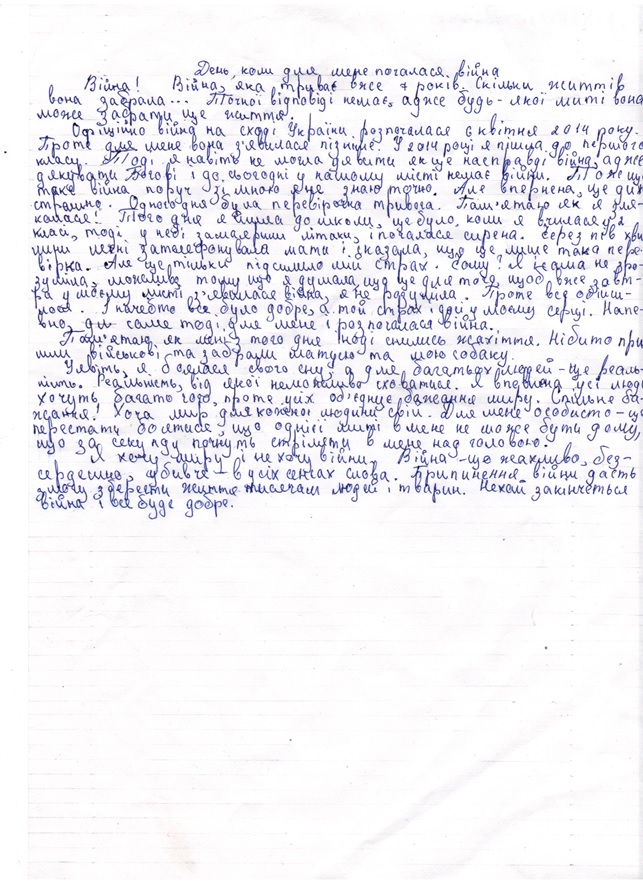 День, коли для мене почалася війна
Війна! Війна, яка триває вже 7 років. Скільки життів
вона забрала... Точної відповіді немає, адже будь-якої миті вона
може забрати ще життя.
Офіційно війна на сході України розпочалася 6 квітня 2014 року.
Проте для мене вона з'явилася пізніше. У 2014 році я пішла до першого
класу. Тоді я навіть не могла уявити як це насправді війна, адже
дякувати Богові і до сьогодні у нашому місті немає війни. Тож що
таке війна поруч зі мною я не знаю точно. Але впевнена, що це
страшно. Одного дня була перевірочна тривога. Пам'ятаю як я зля-
калася! Того дня я йшла до школи, це було, коли я вчилася у 2
класі, тоді у небі літаки, і почалася сирена. Через пів хви-
лини мені зателефонувала мати і сказала, що це лише така пере-
вірка. Але це тільки підсилило мій страх. Чому? Я й сама не зро-
зуміла, можливо тому що я думала, що це для того, щоб вже завт-
ра у моєму місті з'явилася війна, я не розуміла. Проте все обійш-
лося. І начебто все було добре, а той страх і досі у моєму серці. Напе-
вно, саме тоді для мене і розпочалася війна.
Пам'ятаю, як мені з того дня іноді снились жахіття. Нібито при
шли військові та забрали матусю та мою собаку.
Уявіть, я боялася свого сну, а для багатьох людей - це реаль-
ність. Реальність, від якої неможливо сховатися. Я впевнена усі люди
хочуть багато чого, проте усіх об'єднує бажання миру. Спільне ба-
жання! Хоча мир для кожної людини свій. Для мене особисто - це
перестати боятися, що однієї миті в мене не може бути дому,
що за секунду почнуть стріляти в мене над головою.
Я хочу миру і не хочу війни. Війна - що жахливо, без-
сердечно, убивче - в усіх сенсах слова. Припинення війни дасть
змогу зберегти життя тисячам людей і тварин. Нехай закінчеться
війна і все буде добре.